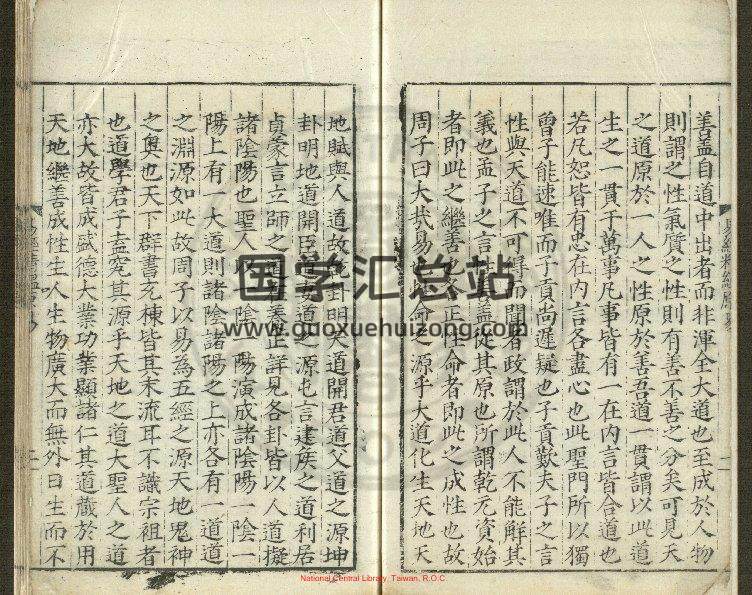 善蓋自道中出者而非渾全大道也至成於人物
則謂之性氣質之性則有善不善之分矣可見天
之道原於一人之性原於善吾道一貫謂以此道
生之一貫千萬事凡事皆有一在內言皆合道也
若凡恕皆有忠在內言各盡心也此聖門所以獨
曾子能速唯而子貢尚遲疑也子貢歎夫子之言
性與天道不可得而聞者政謂於此人不能解其
義也孟子之言性善蓋從其原也所謂乾元資始
者即此之繼善也各正性命者即此之成性也故
周子曰大哉易也性命之源乎大道化生天地天
地賦與人道故乾卦明天道開君道父道之源坤
卦明地道開臣道妻道之源屯言建族之道利居
貞蒙言立師之道在養正詳見各卦皆以人道擬
諸陰陽也聖人以一陰一陽演成諸陰陽一陰一
陽上有一大道則諸陰諸陽之上亦各有一道道
之淵源如此故周子以易為五經之源天地鬼神
之奧也天下群書充棟皆其末流耳不識宗祖者
也道學君子盍究其源乎天地之道大聖人之道
亦大故皆成盛德大業功業顯諸仁其道藏於用
天地繼善成性生人生物廣大而無外日生而不
国学汇总站
www.guoxuehuizong.com
National Central Library, Taiwan, R.O.C